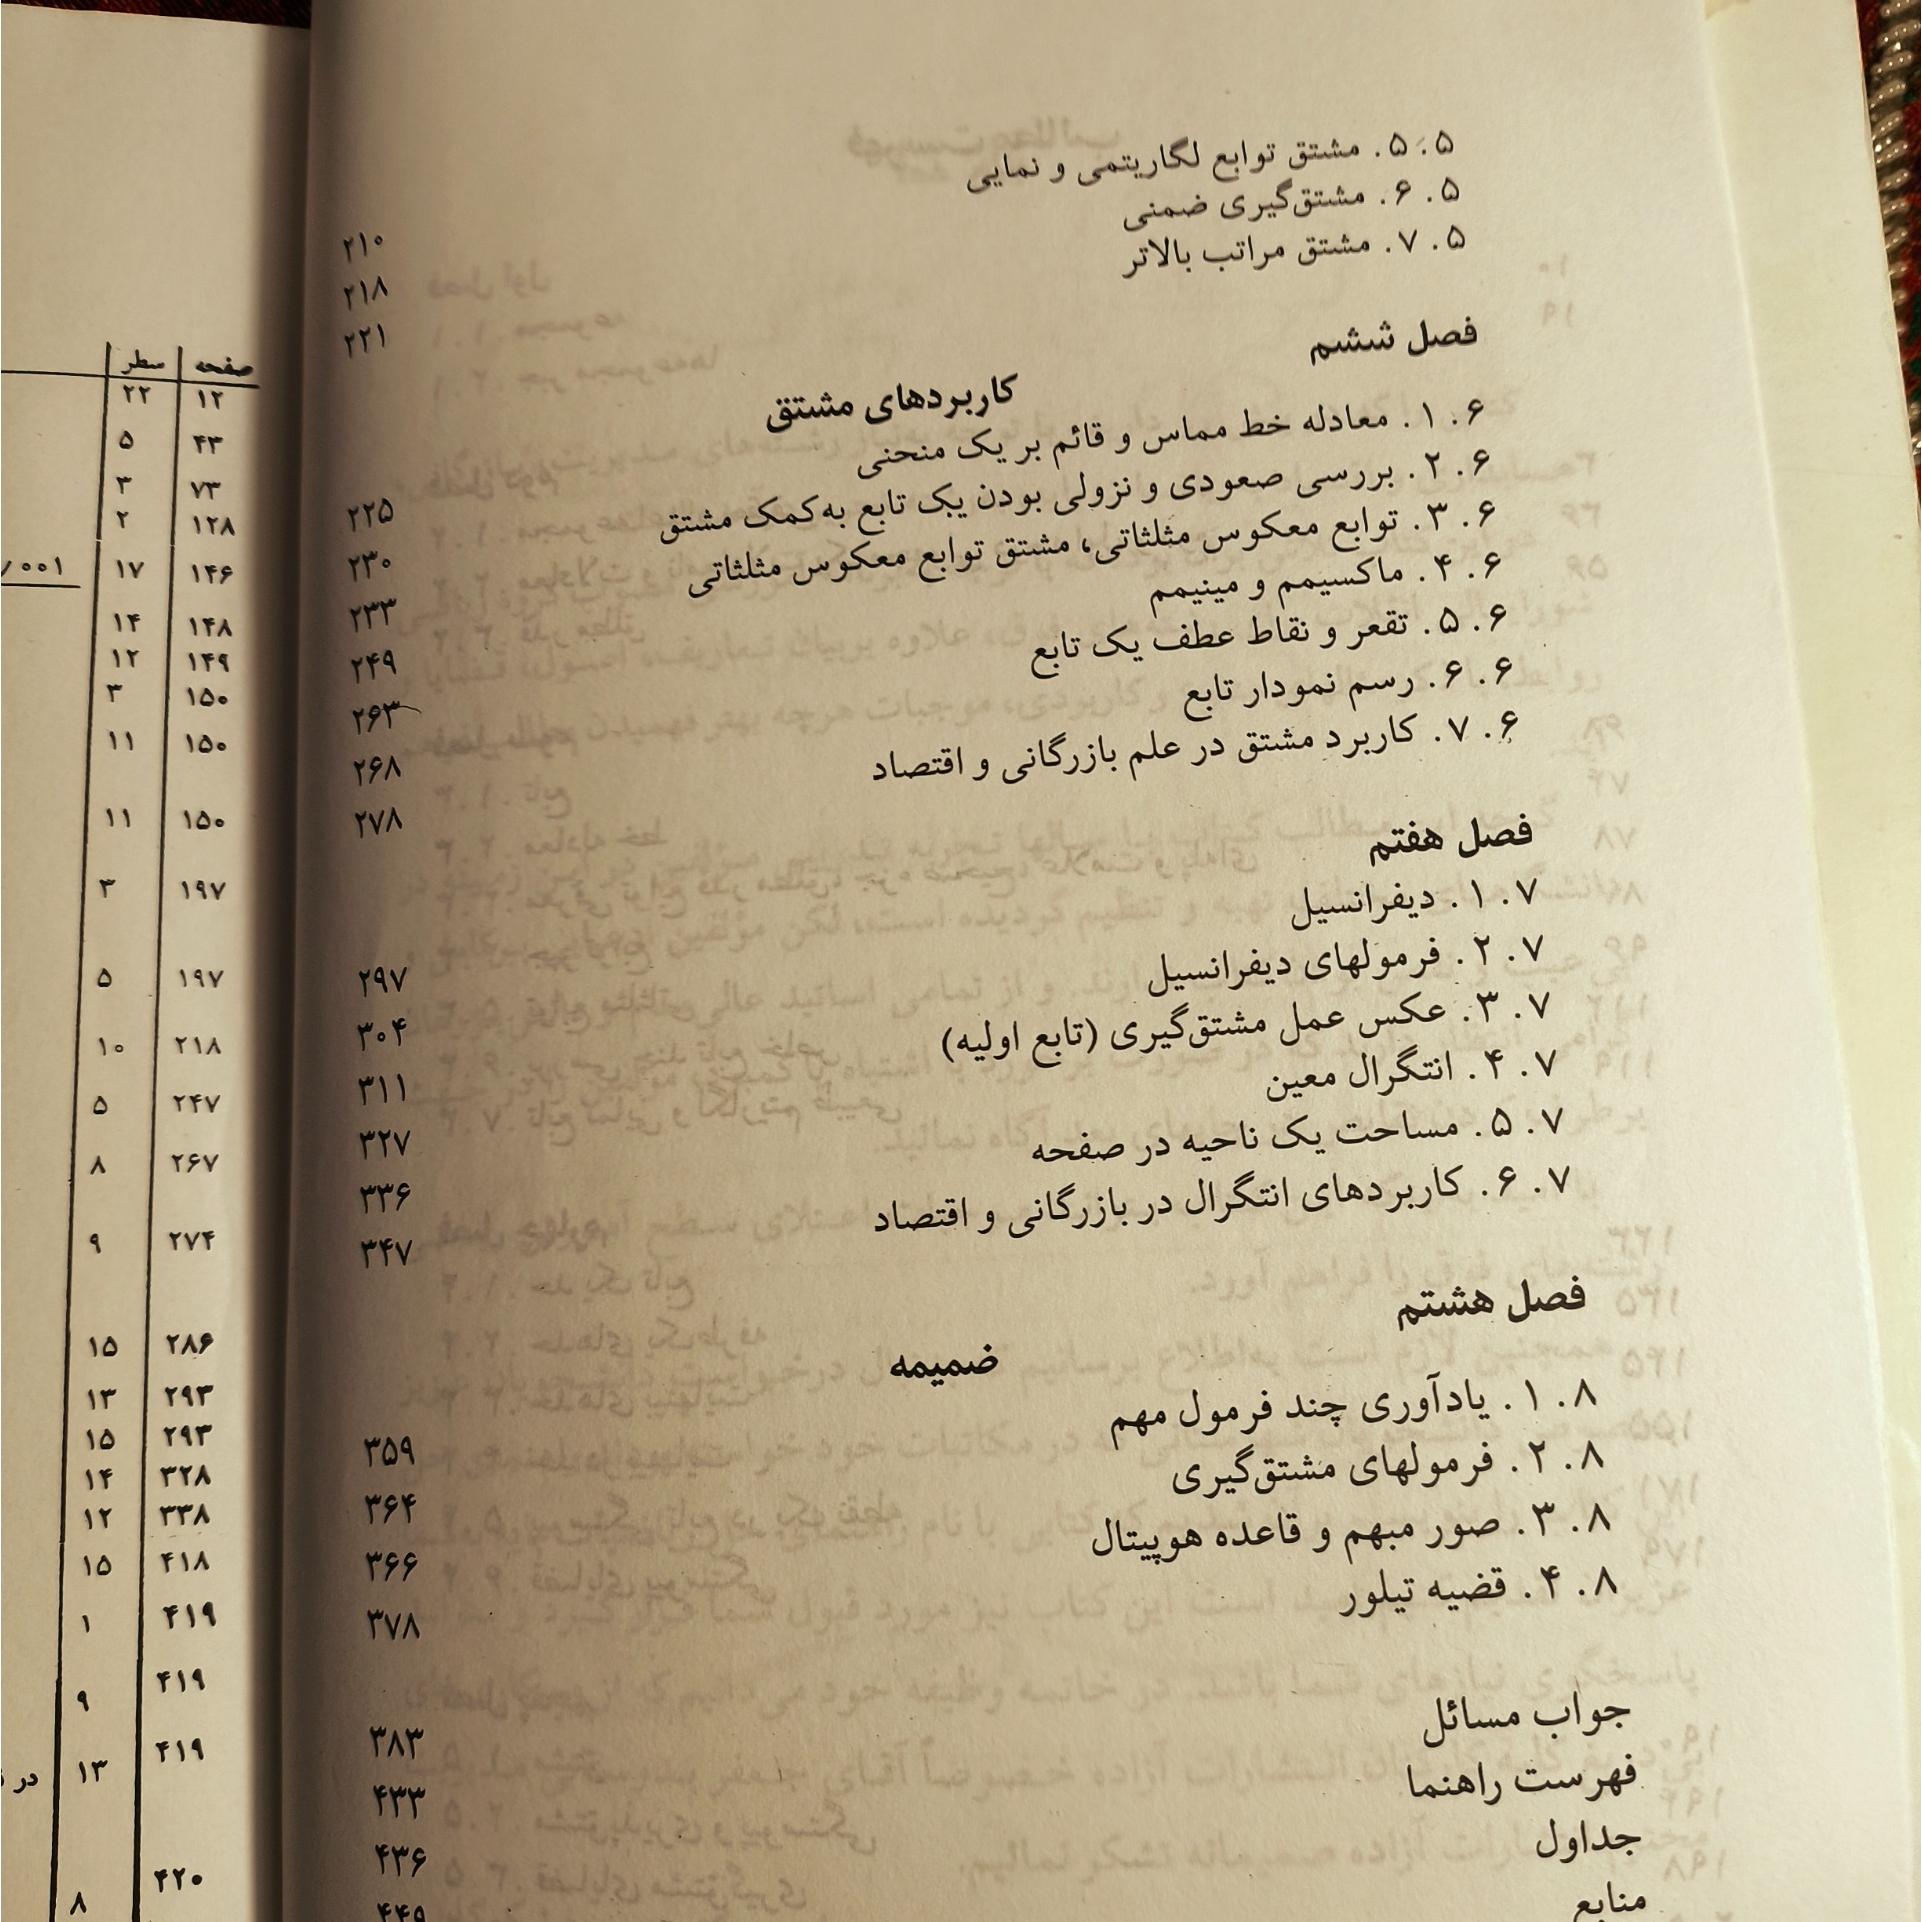 ۵. ۵. مشتق توابع لگاریتمی و نمایی ۲۱۰
۵. ۶. مشتق‌گیری ضمنی ۲۱۸
۵. ۷. مشتق مراتب بالاتر ۲۲۱
فصل ششم
کاربردهای مشتق
۶. ۱. معادله خط مماس و قائم بر یک منحنی ۲۲۵
۶. ۲. بررسی صعودی و نزولی بودن یک تابع به‌کمک مشتق ۲۳۰
۶. ۳. توابع معکوس مثلثاتی، مشتق توابع معکوس مثلثاتی ۲۳۳
۶. ۴. ماکسیمم و مینیمم ۲۴۹
۶. ۵. تقعر و نقاط عطف یک تابع ۲۶۳
۶. ۶. رسم نمودار تابع ۲۶۸
۶. ۷. کاربرد مشتق در علم بازرگانی و اقتصاد ۲۷۸
فصل هفتم
۷. ۱. دیفرانسیل ۲۹۷
۷. ۲. فرمولهای دیفرانسیل ۳۰۴
۷. ۳. عکس عمل مشتق‌گیری (تابع اولیه) ۳۱۱
۷. ۴. انتگرال معین ۳۲۷
۷. ۵. مساحت یک ناحیه در صفحه ۳۳۶
۷. ۶. کاربردهای انتگرال در بازرگانی و اقتصاد ۳۴۷
فصل هشتم
ضمیمه
۸. ۱. یادآوری چند فرمول مهم ۳۵۹
۸. ۲. فرمولهای مشتق‌گیری ۳۶۴
۸. ۳. صور مبهم و قاعده هوپیتال ۳۶۶
۸. ۴. قضیه تیلور ۳۷۸
جواب مسائل ۳۸۳
فهرست راهنما ۴۳۳
جداول ۴۳۶
منابع ۴۴۹
صفحه سطر
۱۲ ۲۲
۴۳ ۵
۷۳ ۳
۱۲۸ ۲
۱۴۶ ۱۷
۱۴۸ ۱۴
۱۴۹ ۱۲
۱۵۰ ۳
۱۵۰ ۱۱
۱۵۰ ۱۱
۱۹۷ ۳
۱۹۷ ۵
۲۱۸ ۱۰
۲۴۷ ۵
۲۶۷ ۸
۲۷۴ ۹
۲۸۶ ۱۵
۲۹۳ ۱۳
۲۹۳ ۱۵
۳۲۸ ۱۴
۳۳۸ ۱۲
۴۱۸ ۱۵
۴۱۹ ۱
۴۱۹ ۹
۴۱۹ ۱۳ در
۴۲۰ ۸